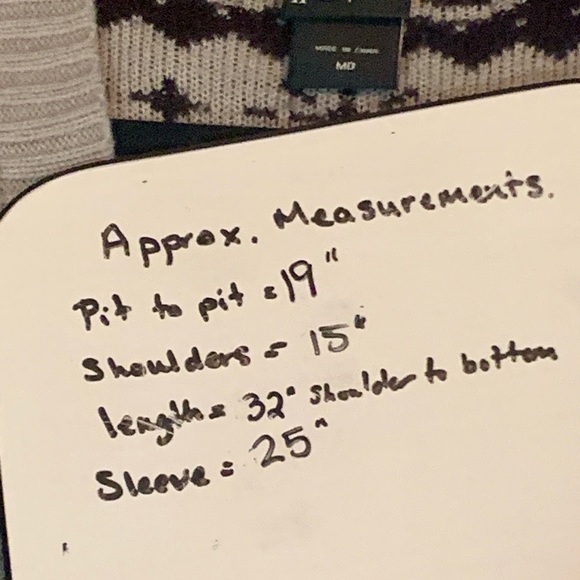 MADE IN CHINA
MD
Approx. Measurements.
Pit to pit = 19"
Shoulders = 15"
length = 32" shoulder to bottom
Sleeve = 25"